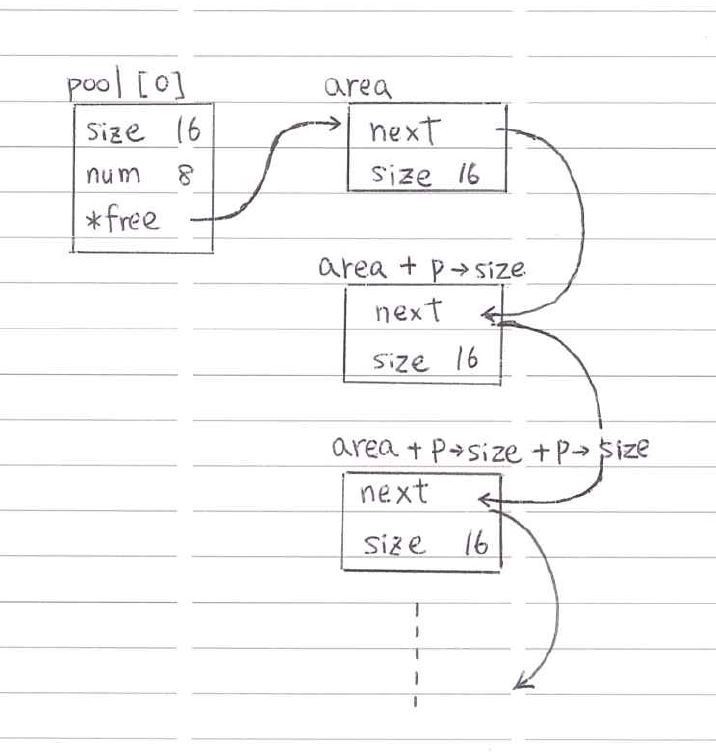 pool [0]
size 16
num 8
*free
area
next
size 16
area + p→size
next
size 16
area + p→size + p→size
next
size 16